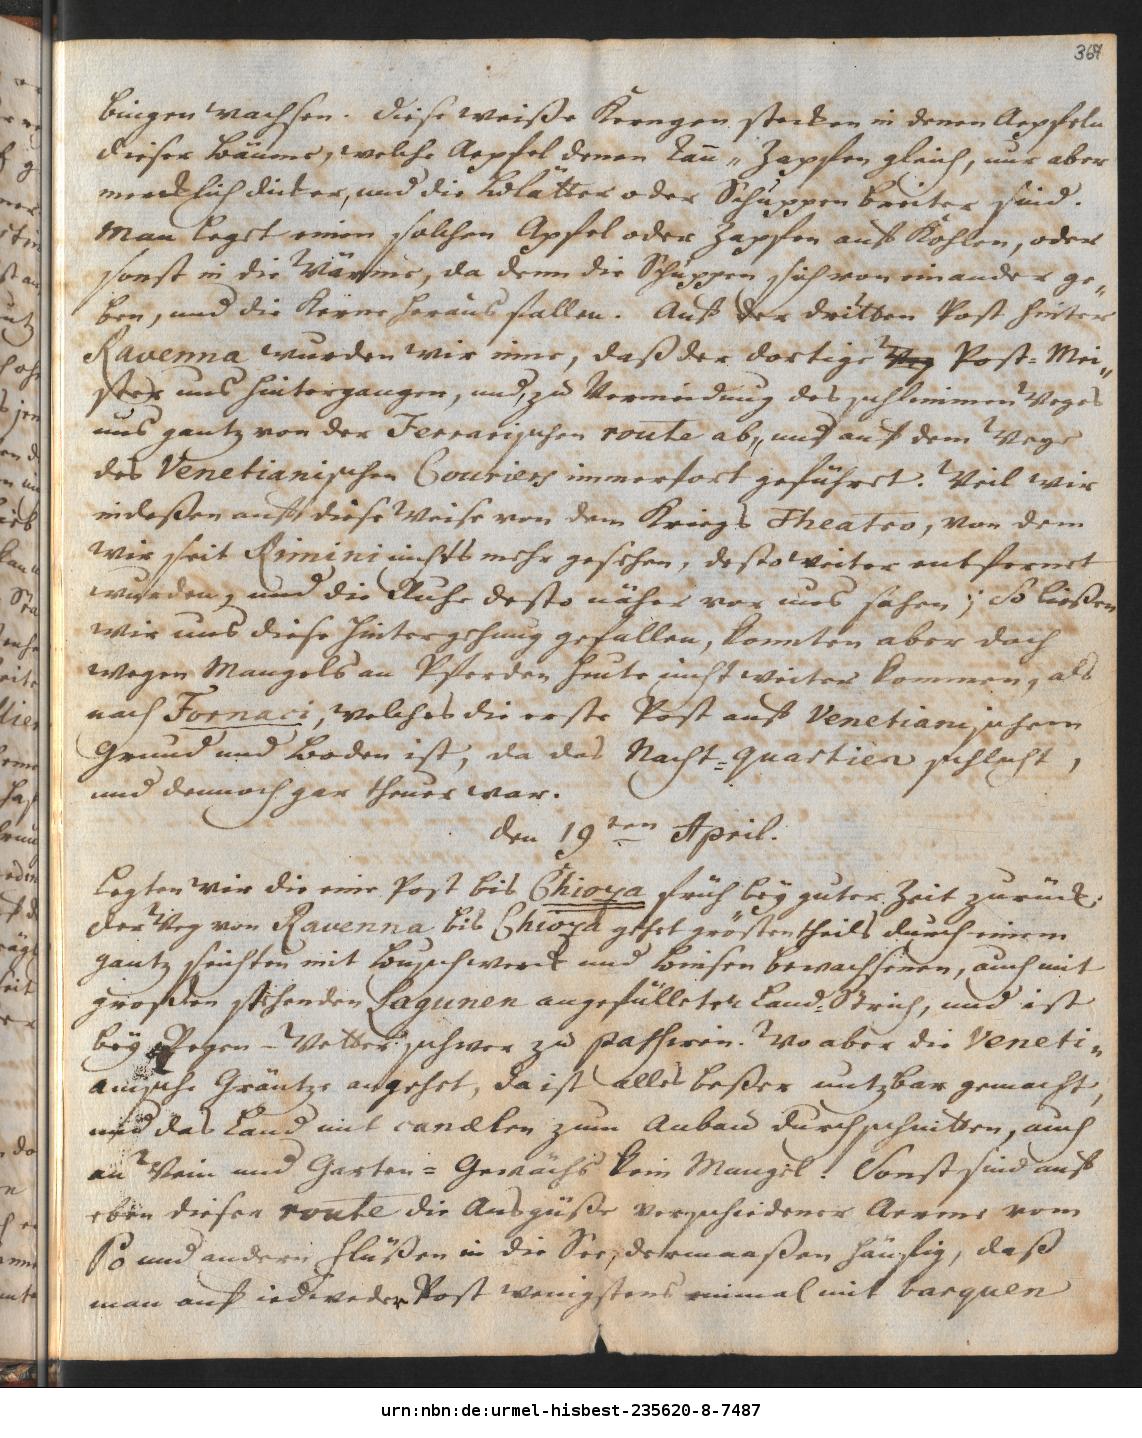 367
bingen wachsen. Diese weiße Kerngen stecken in denen Aepfeln
dieser Bäume, welche Aepfel denen Tañ„Zapffen gleich, nur aber
mercklich dicker, und die Blätter oder Schuppen breiter sind.
Man legt einen solchen Apfel oder Zapfen auf Kohlen, oder
sonst in die Wärme, da denn die Schuppen sich von einander ge„
ben, und die Kerne heraus fallen. Auf der dritten Post hinter
Ravenna wurden wir inne, daß der dortige Post-Mei„
ster uns hintergangen, und, zu Vermeidung des schlimmen Weges
uns gantz von der Ferrarischen route ab„ und auf dem Wege
des Venetianischen Couriers immerfort geführet. Weil wir
indeßen auf diese Weise von dem Kriegs Theatro, von dem
wir seit Rimini nichts mehr gesehen, desto weiter entfernet
wurden, und die Ruhe desto näher vor uns sahen; So ließen
wir uns diese Hintergehung gefallen, konnten aber doch
wegen Mangels an Pferden heute nicht weiter kommen, als
nach Fornaci, welches die erste Post auf Venetianischem
Grund und Boden ist, da das Nacht-quartier schlecht,
und dennoch gar theuer war.
den 19ten April.
Legten wir die eine Post bis Chioza früh bey guter Zeit zurück;
der Weg von Ravenna bis Chioza gehet größtentheils durch einen
gantz seichten mit Buschwerck und Binsen bewachsenen, auch mit
großen stehenden Lagunen angefülleten Land-Strich, und ist
bey Regen-Wetter schwer zu passiren. Wo aber die Veneti„
anische Gräntze angehet, da ist alles beßer nutzbar gemacht,
und das Land mit canälen zum Anbau durchschnitten, auch
an Wein und Garten-Gewächs kein Mangel. Sonst sind auf
eben dieser route die Ausgüße verschiedener Aerme vom
Po und andern Flüßen in die See, dermaaßen häufig, daß
man auf iedweder Post wenigstens einmal mit barquen
urn:nbn:de:urmel-hisbest-235620-8-7487